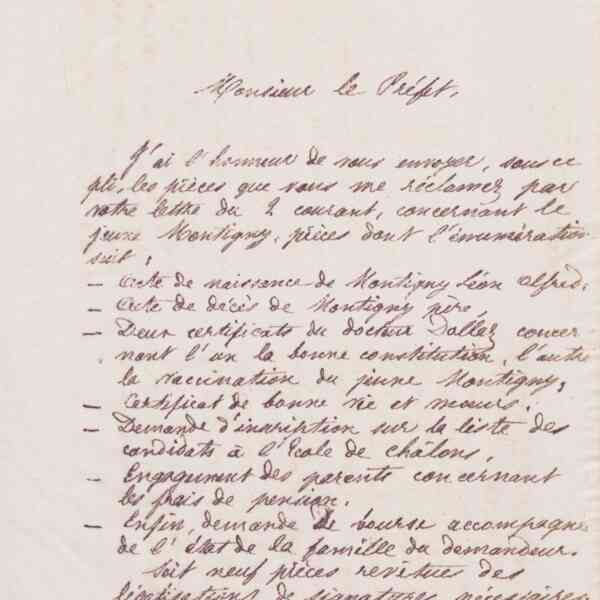 Monsieur le Préfet,
J'ai l'honneur de vous envoyer, sous ce
pli, les pièces que vous me réclamez par
votre lettre du 2 courant, concernant le
jeune Montigny, pièces dont l'énumération
suit :
— Acte de naissance de Montigny Léon Alfred,
— Acte de décès de Montigny père,
— Deux certificats du docteur Dallez concer
nant l'un la bonne constitution, l'autre
la vaccination du jeune Montigny,
— Certificat de bonne vie et mœurs,
— Demande d'inscription sur la liste des
candidats à l'École de Châlons,
— Engagement des parents concernant
les frais de pension.
— Enfin, demande de bourse accompagnée
de l'état de la famille du demandeur.
Soit neuf pièces revêtues des
légalisations de signatures nécessaires